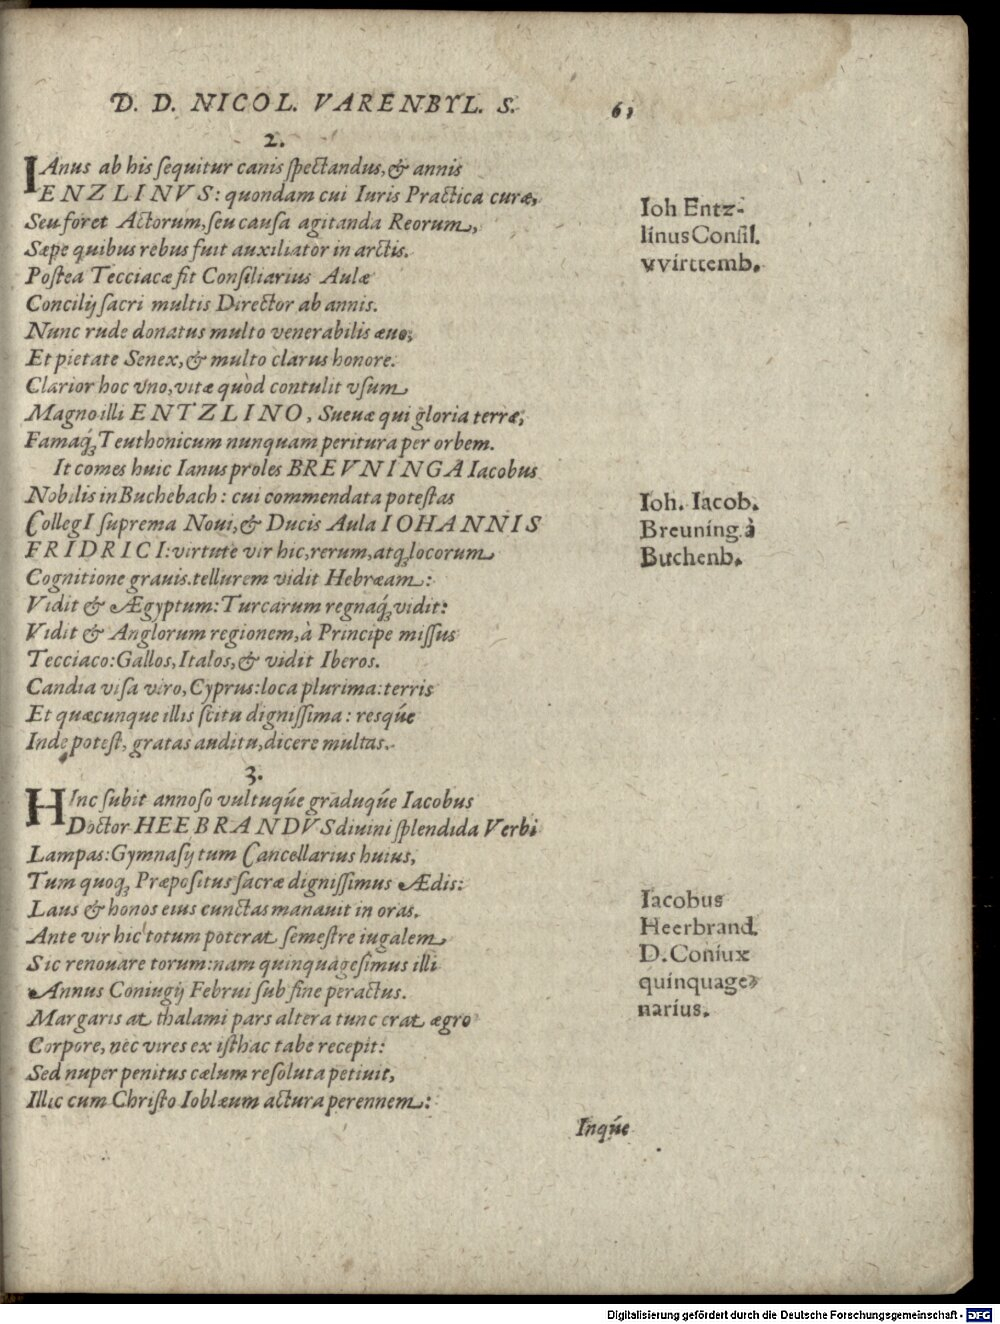 D. D. NICOL. VARENBYL. S. 61
2.
IAnus ab his ſequitur canis ſpectandus, & annis
ENZLINVS: quondam cui Iuris Practica curæ,
Seu foret Actorum, ſeu cauſa agitanda Reorum,
Sæpe quibus rebus fuit auxiliator in arctis.
Poſtea Tecciacæ fit Conſiliarius Aulæ
Concilij ſacri multis Director ab annis.
Nunc rude donatus multo venerabilis æuo,
Et pietate Senex, & multo clarus honore.
Clarior hoc vno, vitæ quòd contulit vſum
Magno illi ENTZLINO, Sueuæ qui gloria terræ,
Famaq́; Teuthonicum nunquam peritura per orbem.
It comes huic Ianus proles BREVNINGA Iacobus
Nobilis in Buchebach: cui commendata poteſtas
CollegI ſuprema Noui, & Ducis Aula IOHANNIS
FRIDRICI: virtute vir hic, rerum, atq; locorum
Cognitione grauis. tellurem vidit Hebræam:
Vidit & Ægyptum: Turcarum regnaq́; vidit:
Vidit & Anglorum regionem, à Principe miſſus
Tecciaco: Gallos, Italos, & vidit Iberos.
Candia viſa viro, Cyprus: loca plurima: terris
Et quæcunque illis ſcitu digniſſima: resq́ue
Inde poteſt, gratas auditu, dicere multas.
Ioh Entz-
linus Conſil.
vvirttemb.
Ioh. Iacob.
Breuning à
Buchenb.
3.
HInc ſubit annoſo vultuq́ue graduq́ue Iacobus
Doctor HEEBRANDVS diuini ſplendida Verbi
Lampas: Gymnaſij tum Cancellarius huius,
Tum quoq; Præpoſitus ſacræ digniſſimus Ædis:
Laus & honos eius cunctas manauit in oras.
Ante vir hic totum poterat ſemeſtre iugalem
Sic renouare torum: nam quinquageſimus illi
Annus Coniugij Februi ſub fine peractus.
Margaris at thalami pars altera tunc erat ægro
Corpore, nec vires ex iſthac tabe recepit:
Sed nuper penitus cælum reſoluta petiuit,
Illic cum Chriſto Ioblæum actura perennem:
Iacobus
Heerbrand.
D. Coniux
quinquage-
narius.
Inq́ue
Digitalisierung gefördert durch die Deutsche Forschungsgemeinschaft - DFG